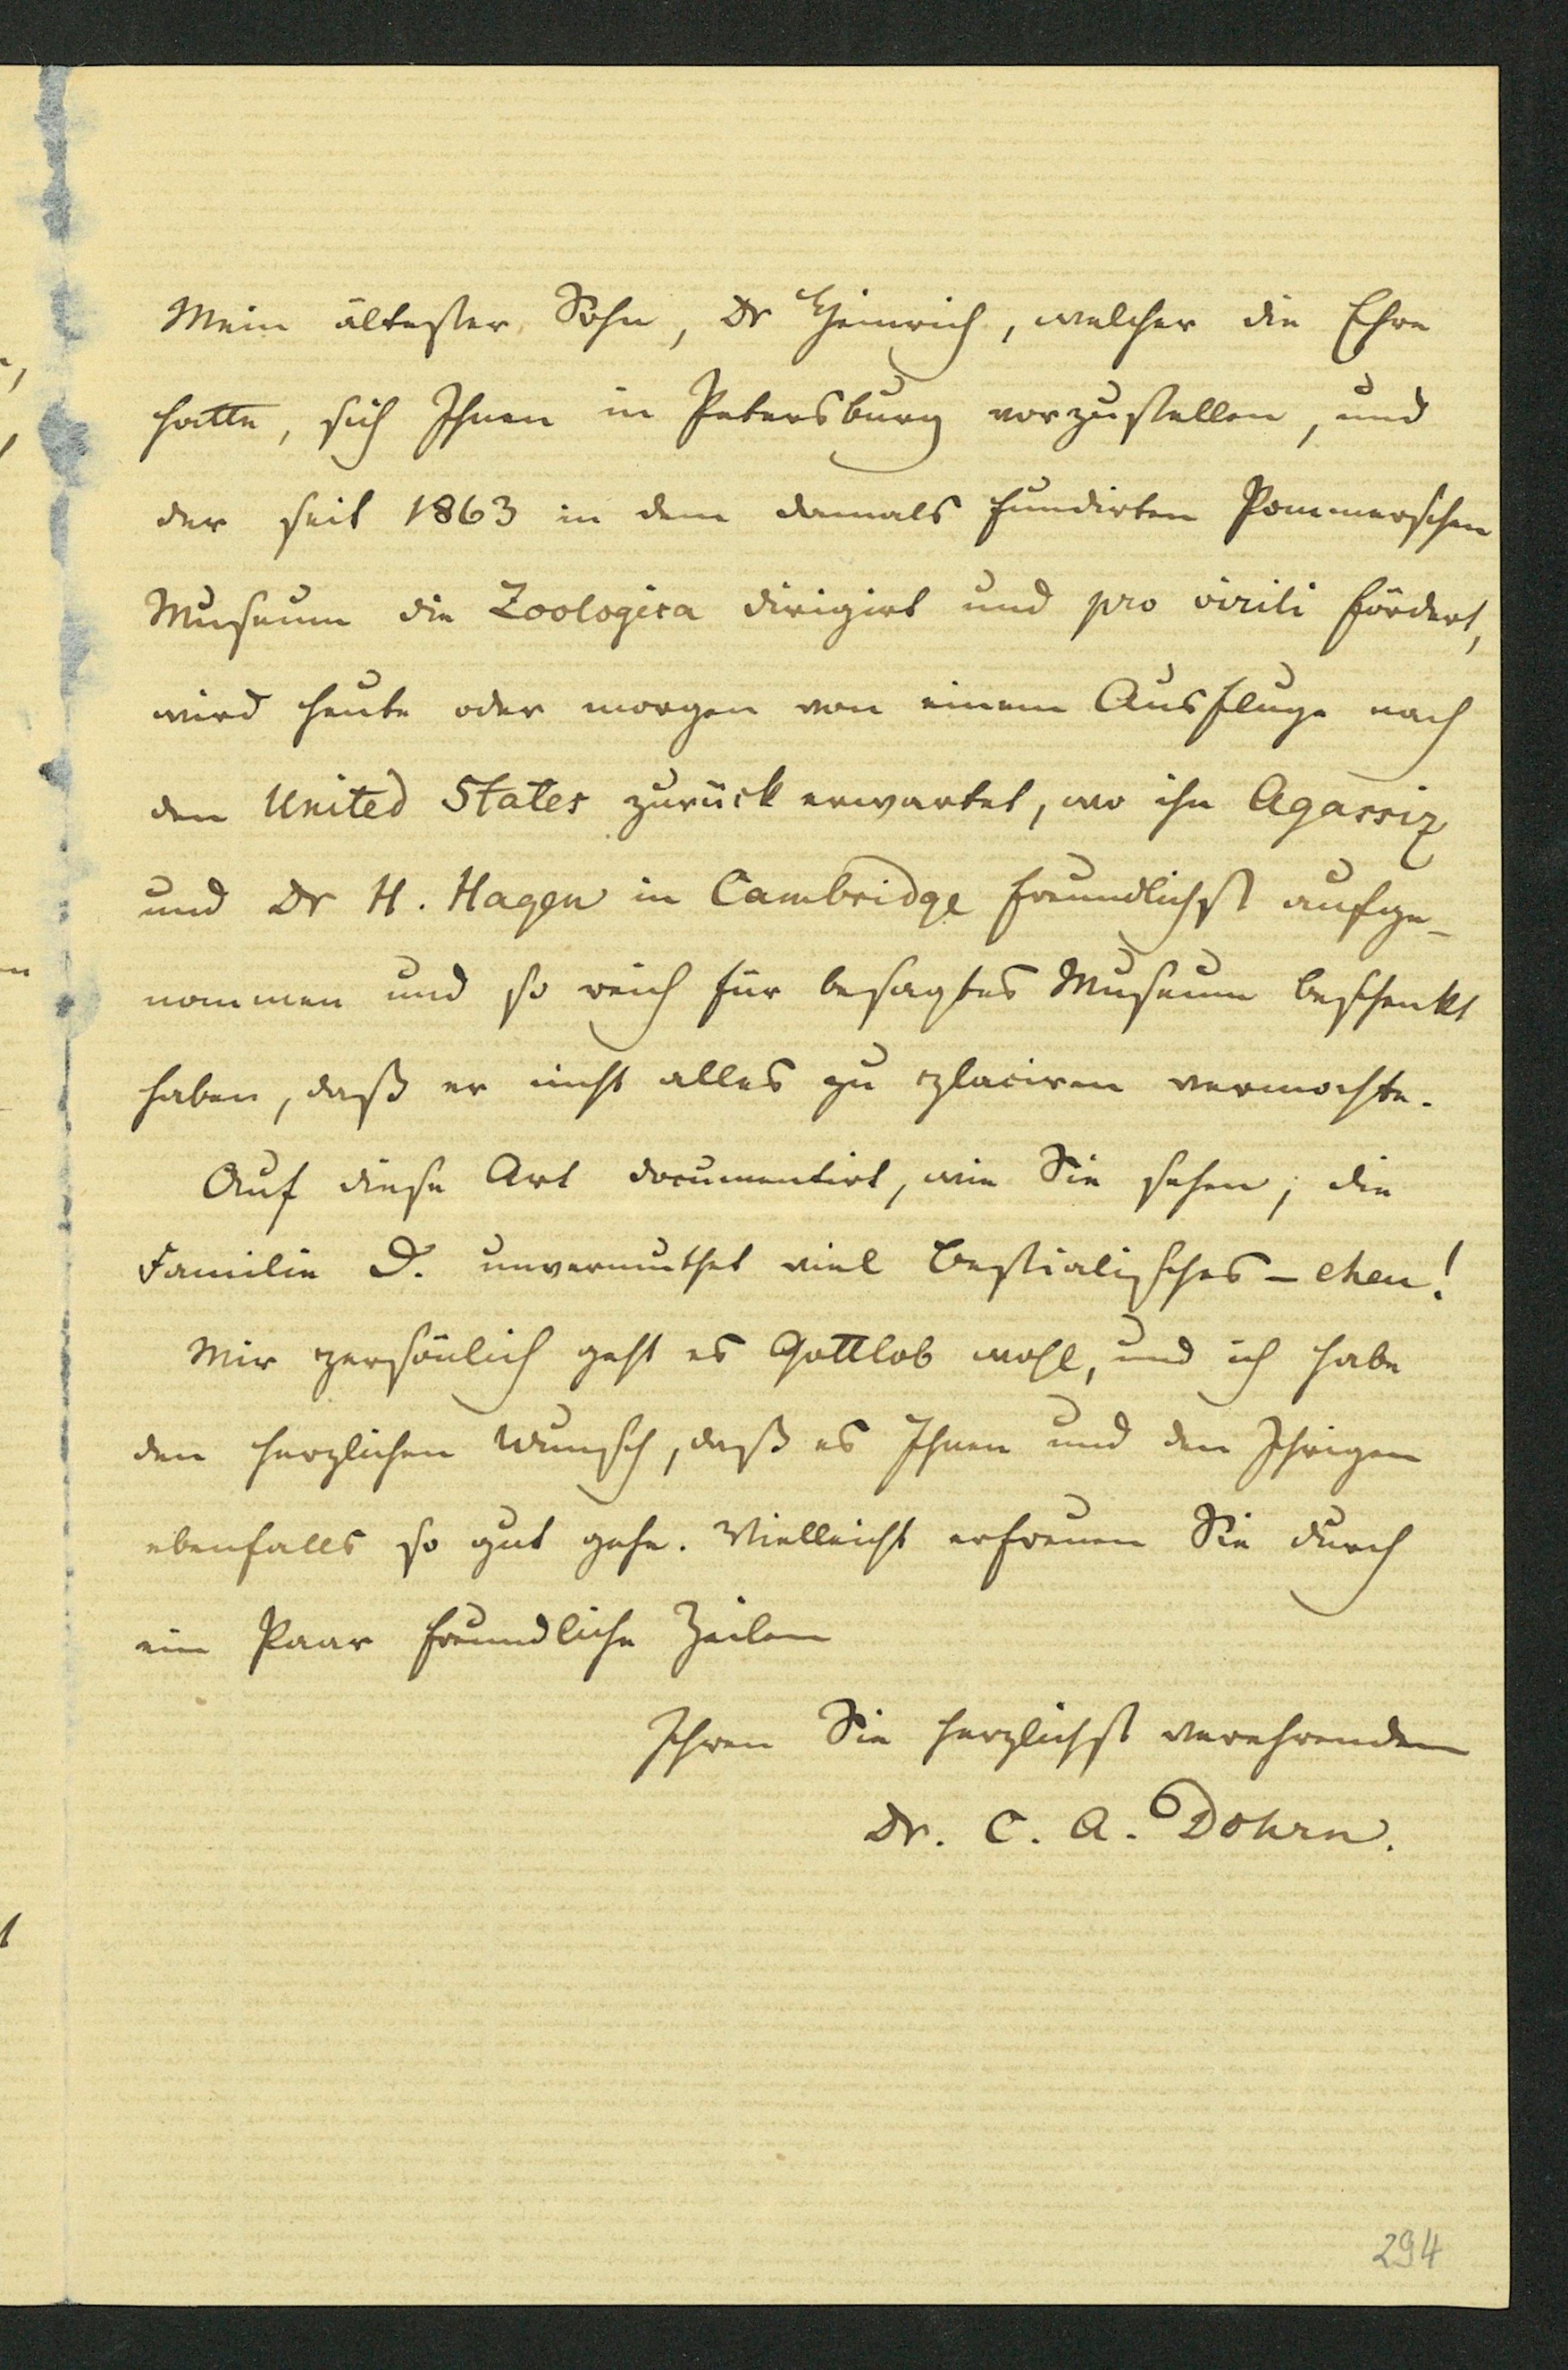 Mein ältester Sohn, Dr Heinrich, welcher die Ehre
hatte, sich Ihnen in Petersburg vorzustellen, und
der seit 1863 in dem damals fundirten Pommerschen
Museum die Zoologica dirigirt und pro virili fördert,
wird heute oder morgen von einem Ausfluge nach
den United States zurück erwartet, wo ihn Agassiz
und Dr H. Hagen in Cambridge freundlichst aufge-
nommen und so reich für besagtes Museum beschenkt
haben, daß er nicht alles zu placiren vermochte.
Auf diese Art documentirt, wie Sie sehen, die
Familie D. unvermuthet viel Bestialisches – eheu!
Mir persönlich geht es Gottlob wohl, und ich habe
den herzlichen Wunsch, daß es Ihnen und den Ihrigen
ebenfalls so gut gehe. Vielleicht erfreuen Sie durch
ein Paar freundliche Zeilen
Ihren Sie herzlichst verehrenden
Dr. C. A. Dohrn.
294